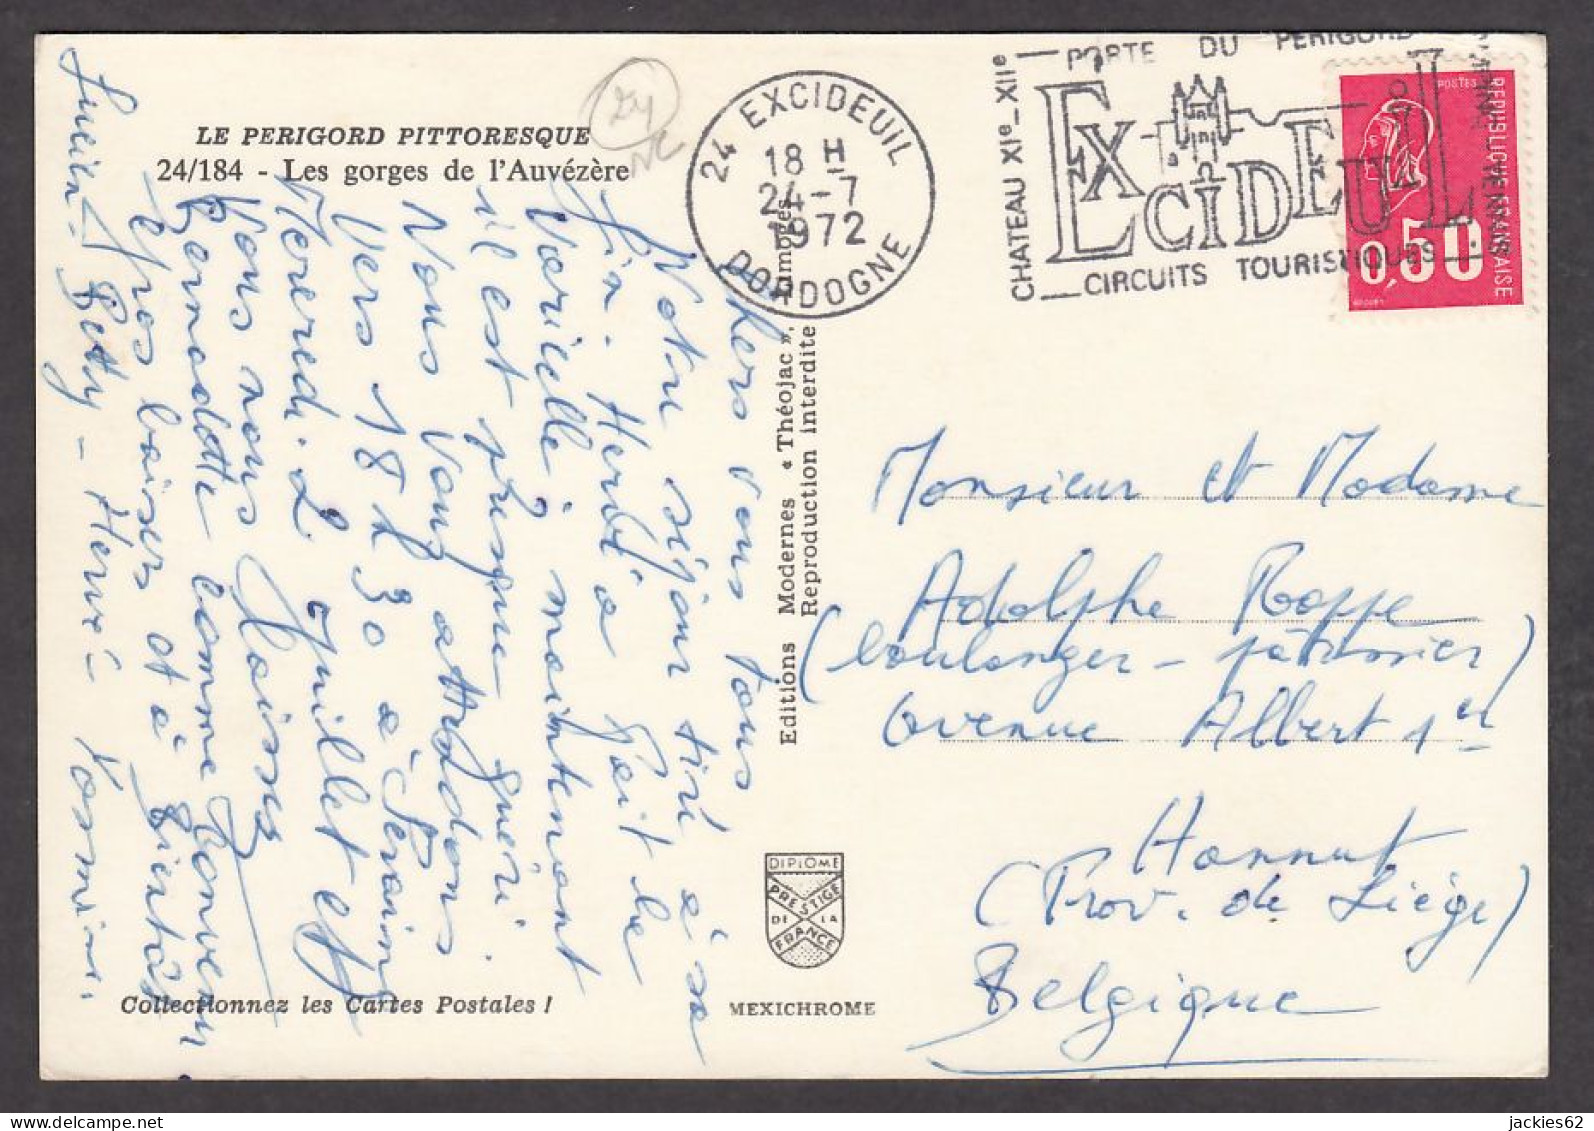 LE PERIGORD PITTORESQUE
24/184 - Les gorges de l'Auvézère
24
24 EXCIDEUIL
18 H
24-7
1972
DORDOGNE
PORTE DU PERIGORD
CHATEAU XIe_XIIe
EXCIDEUIL
CIRCUITS TOURISTIQUES
POSTES
REPUBLIQUE FRANÇAISE
0,50
Chers vous tous
Notre séjour tire à sa
fin. Hervé a fait la
varicelle, maintenant
il est presque guéri.
Nous vous attendons
vers 18 h 30 à Seraing
Mercredi 2
Vous nous
Bernadette comme convenu
Gros baisers et à bientôt
Lucien - Betty - Hervé - Yasmine.
Editions Modernes « Théojac », Limoges
Reproduction interdite
Monsieur et Madame
Adolphe Roppe
(boulanger - pâtissier)
avenue Albert 1er
Hannut
(Prov. de Liège)
Belgique
DIPLOME
PRESTIGE
DE LA
FRANCE
Collectionnez les Cartes Postales !
MEXICHROME
jackies62